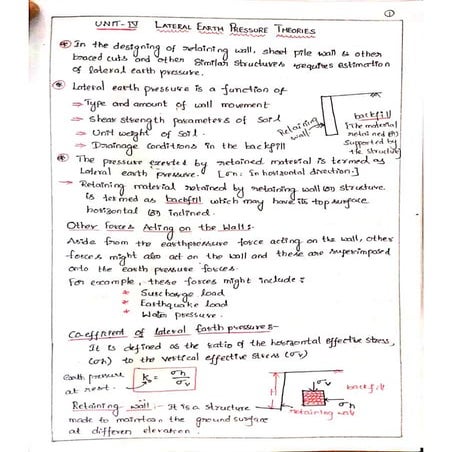 ①
UNIT-IV LATERAL EARTH PRESSURE THEORIES
* In the designing of retaining wall, sheet pile wall & other
braced cuts and other similar structures requires estimation
of lateral earth pressure.
* Lateral earth pressure is a function of
⇒ Type and amount of wall movement
⇒ Shear strength parameters of soil
⇒ Unit weight of soil.
⇒ Drainage conditions in the backfill
Retaining wall
backfill
[The material
retained (or)
supported by
the structure]
* The pressure exerted by retained material is termed as
Lateral earth pressure. [σh: in horizontal direction.]
→ Retaining material retained by retaining wall (or) structure
is termed as backfill which may have its top surface
horizontal (or) inclined.
Other Forces Acting on the Walls:-
Aside from the earthpressure force acting on the wall, other
forces might also act on the wall and these are superimposed
onto the earth pressure forces.
For example, these forces might include:
* Surcharge load
* Earthquake load
* Water pressure.
Co-efficient of lateral Earth pressure:-
It is defined as the ratio of the horizontal effective stress,
(σh) to the vertical effective stress (σv)
Earth pressure
at rest.
k₀ = σh/σv
H
σv
backfill
σh
retaining wall
Retaining wall:- It is a structure
made to maintain the ground surface
at different elevation.